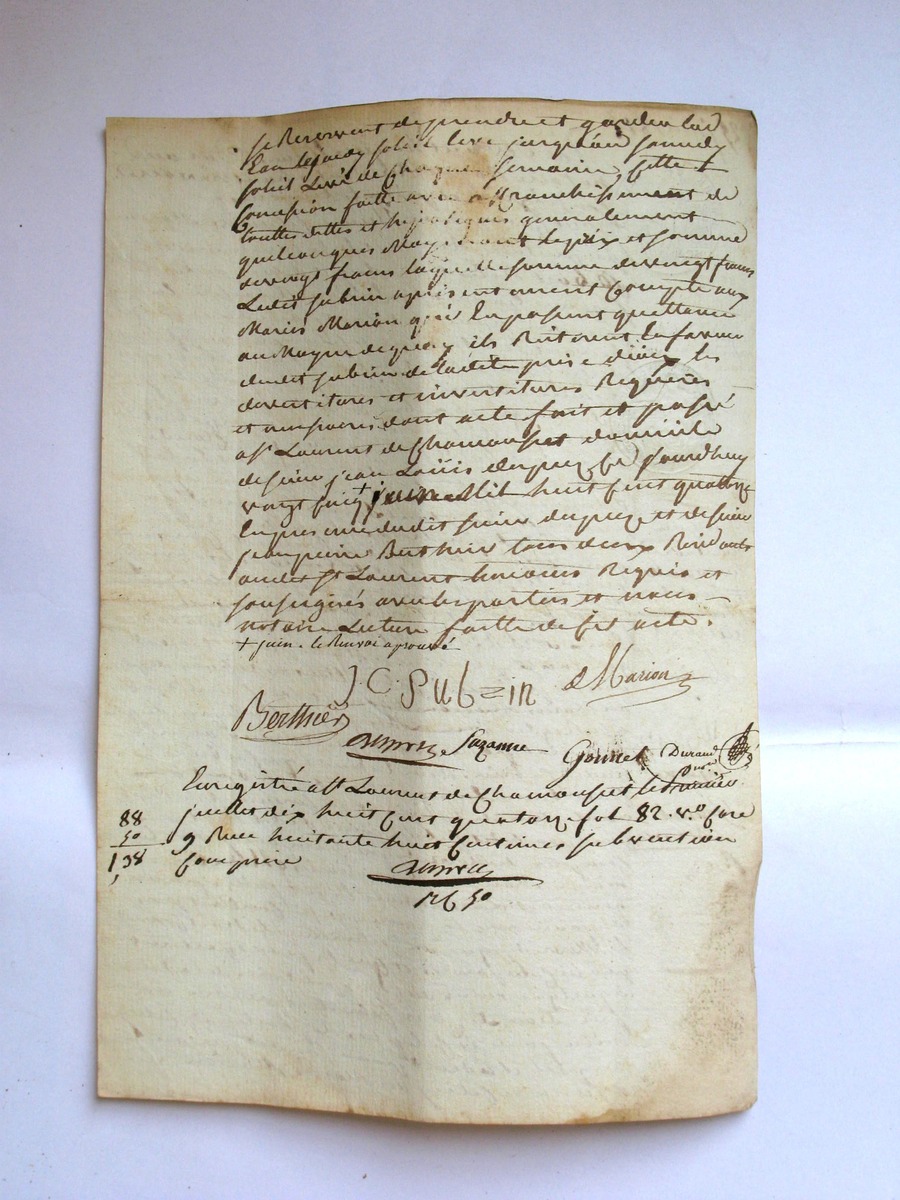 se Reservent de prendre et garder lad
Eau le jeudy soleil levé jusqu'au samedy
soleil Levé de chaque semaine, cette
Concession faitte avec affranchissement de
touttes dettes et hipoteques generalement
quelconques Moyenant le prix et somme
de vingt francs laquelle somme de vingt francs
Ledit subzin a présentement Compté aux
Mariés Marion qui En passent quittance
au Moyen de quoy ils
dudit subzin de ladite prise d'eau les
devestitures et investitures Requises
et dont acte fait et passé
a St Laurent de Chamousset domicile
de sieur jean Louis Dupuy ce jourdhuy
vingt cinq + juin Mil huit cent quatorze
En présence dudit sieur Dupuy et de sieur
jean pierre Berthier tous deux Residents
audit St Laurent Requis et
soussignés avec les parties et nous
notaire Lecture faitte de cet acte.
+ juin. le Renvoi aprouvé
J C Subzin Marion
Berthier
Suzanne Gonnet Durand
Enregistré a St Laurent de Chamousset le premier
juillet dix huit cent quatorze fol 82. v.o Case
9 Reçu huitante huit Centimes subvention
88
50
1,38
Comprise